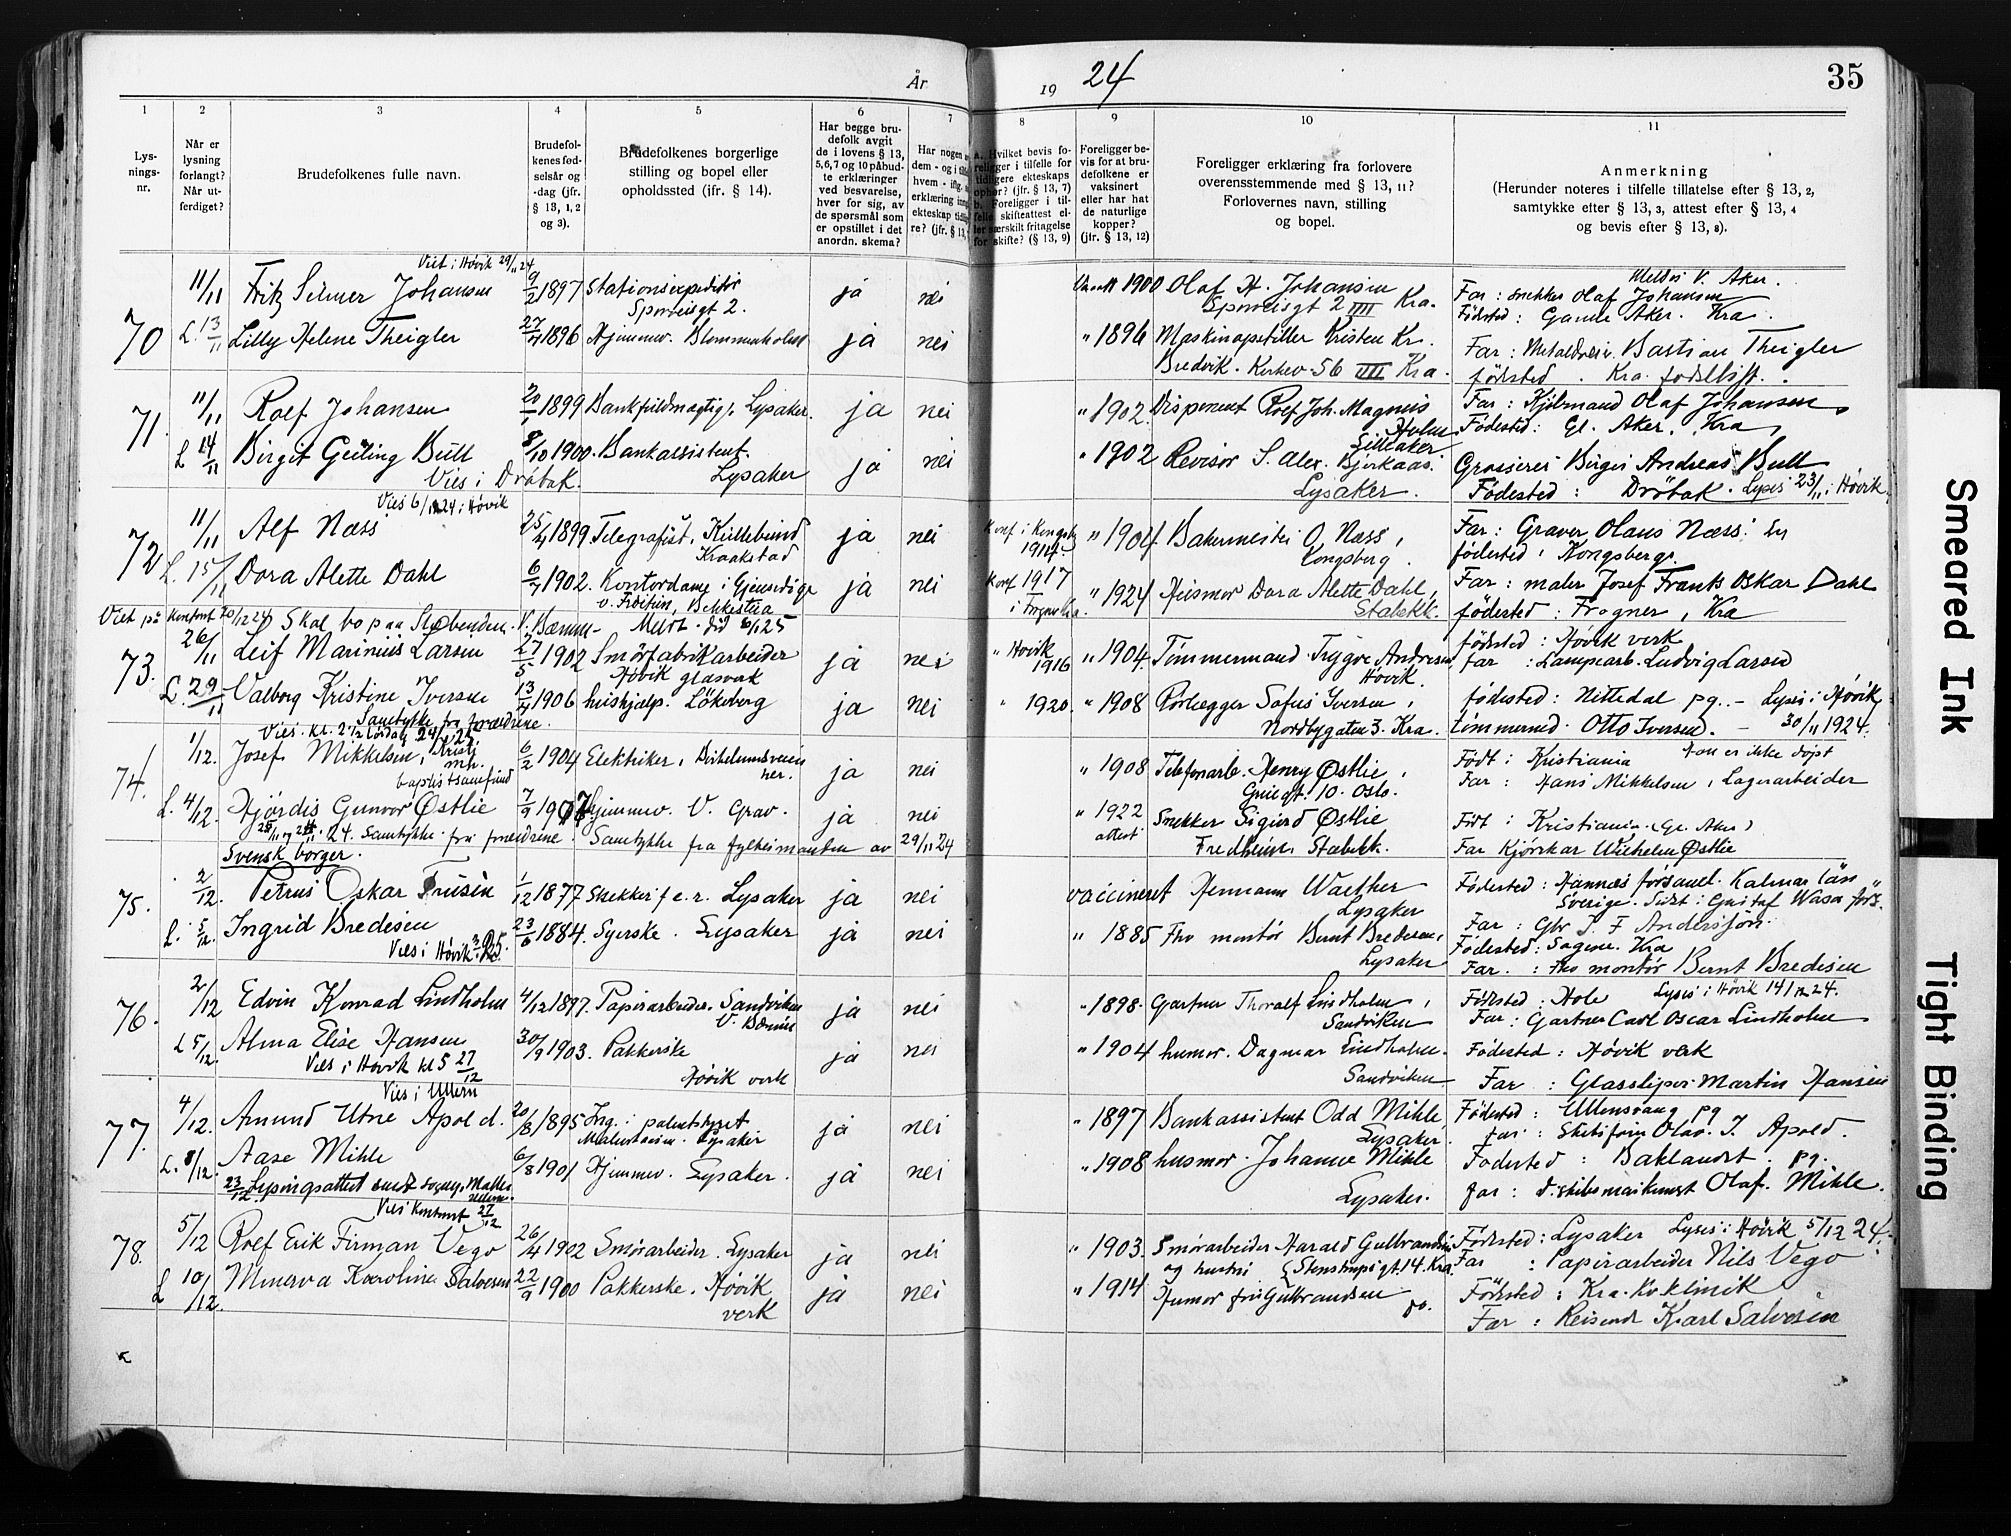 År 19 24
35
1 2 3 4 5 6 7 8 9 10 11
Lys-
nings-
nr.
Når er
lysning
forlangt?
Når ut-
ferdiget?
Brudefolkenes fulle navn.
Brudefol-
kenes fød-
selsår og
-dag (jfr.
§ 13, 1, 2
og 3).
Brudefolkenes borgerlige
stilling og bopel eller
opholdssted (ifr. § 14).
Har begge bru-
defolk avgit
de i lovens § 13,
5,6,7 og 10 påbud-
te erklæringer
ved besvarelse,
hver for sig, av
de spørsmål som
er opstillet i det
anordn. skema?
Har nogen
dem - og i
hvem - ifig.
erklæring
ekteskap
re? (jfr. § 13,
a. Hvilket bevis fo-
religger i tilfelle for
tidligere ekteskaps
ophør? (jfr. § 13, 7)
b. Foreligger i til-
felle skifteattest el-
ler særskilt fritagelse
for skifte? (§ 13, 9)
Foreligger be-
vis for at bru-
defolkene er
vaksinert
eller har hat
de naturlige
kopper?
(jfr. § 13, 12)
Foreligger erklæring fra forlovere
overensstemmende med § 13, 11?
Forlovernes navn, stilling
og bopel.
Anmerkning
(Herunder noteres i tilfelle tillatelse efter § 13, 2,
samtykke efter § 13, 3, attest efter § 13, 4
og bevis efter § 13, 8).
Viet i Høvik 29/11 24
70 11/11 Fritz Selmer Johansen 9/2 1897 Stationsexpeditør ja nei 1900 Olaf H. Johansen
Sporveisgt 2. Sporveisgt 2 IIII Kra.
V. Aker.
Far: snekker Olaf Johansen
Fødested: Gamle Aker. Kra.
L. 13/11 Lilly Helene Theigler 27/7 1896 Hjemmev. Blommenholm ja nei " 1896 Maskinopstiller Kristen Kr.
Bredvik. Kirkev. 56 IIII Kra.
Far: Bastian Theigler
fødested. Kra. fødselstift.
71. 11/11 Rolf Johansen 20/1 1899 Bankfuldmægtig. Lysaker. ja nei " 1902. Disponent Rolf Joh. Magnus
Holm
Lilleaker
Far: Olaf Johansen
Fødested: Gl. Aker, Kra
L 14/11 Birgit Geiling Bull 8/10 1900. Bankassistent. ja nei " 1902 Revisor S. Alex. Bjerkaas.
Vies i Drøbak. Lysaker Lysaker.
Grosserer Birger Andreas Bull
Fødested: Drøbak. Lyses 23/11 i Høvik.
Vies 6/12 24 i Høvik
72 11/11 Alf Næss 25/4 1899 Telegrafist, Kullebund ja nei konf i Kongsb. 1914 " 1904 Bakermester O. Næss,
Kraakstad Kongsberg.
Far: Graver Olaus Næss.
fødested: Kongsberg.
L. 15/11 Dora Alette Dahl 6/7 1902. Kontordame i Gjensidige ja nei konf 1917 " 1924 Husmor Dora Alette Dahl,
Bekkestua Stabekk.
Far: maler Josef Frants Oskar Dahl
fødested: Frogner, Kra
Viet på kontoret 20/12 24 Skal bo paa Slæbenden. V. Bærum - Meldt did 6/1 25
73. 26/11 Leif Marinius Larsen 27/5 1902 Smørfabrikarbeider ja nei " Høvik 1916 " 1904. Tømmermand Trygve Andresen
Høvik glasverk Høvik.
fødested: Høvik verk
far: Lampearb. Ludvig Larsen
L. 29/11 Valborg Kristine Iversen 13/4 1906 hushjelp. Løkeberg ja nei " 1920. " 1908 Rørlægger Sofus Iversen,
Samtykke fra forældrene. Nordbygaten 3. Kra.
fødested: Nittedal pg. - Lyses i Høvik
tømmermd. Otto Iversen. - 30/11 1924.
Vies kl. 2 1/2 Lørdag 24/1 25
74. 1/12. Josef Mikkelsen, Kristi 6/2 1904 Elektriker, ja nei " 1908 Telefonarb. Henry Østlie,
mh. ner. Oslo.
baptistsamfund
Født: Kristiania Han er ikke døpt
Far: Hans Mikkelsen, Lagerarbeider
L. 4/12. Hjørdis Gunvor Østlie 7/9 1907 Hjemmev. V. Grav. ja nei " 1922 attest Snekker Sigurd Østlie
Fredheim. Stabekk.
24. Samtykke fra forældrene. Samtykke fra fylkesmanden av 29/11 24
Født: Kristiania. (Gl. Aker)
Far Kjørekar Wilhelm Østlie
Svensk borger.
75. 2/12. Petrus Oskar Frusén 1/12 1877 Snekker f.e.r. Lysaker ja nei vaccineret Hermann Walther
Lysaker
Fødested: Hannæs församl. Kalmar län
Sverige. Sidst: Gustaf Wasa förs.
Far: Gbr J. F Andersson.
L. 5/12. Ingrid Bredesen 23/6 1884. Syerske. Lysaker ja nei " 1885 Fhv montør Bernt Bredesen,
Vies i Høvik 25. Lysaker
Fødested: Sagene. Kra
Far.: fhv montør Bernt Bredesen
76. 2/12 Edvin Konrad Lindholm 4/12 1897. Papirarbeider. Sandviken ja nei " 1898. Gartner Thoralf Lindholm,
V. Bærum Sandviken
Fødested: Hole Lyses i Høvik 14/12 24.
Far: Gartner Carl Oscar Lindholm
L 5/12. Alma Elise Hansen 30/9 1903. Pakkerske ja nei " 1904 husmor. Dagmar Lindholm.
Vies i Høvik kl 5 27/12 Høvik verk Sandviken
Fødested: Høvik verk
Far: Glassliper Martin Hansen
Vies i Ullern
77. 4/12. Amund Utne Apold. 20/8 1895 Ing. i patentstyret ja nei " 1897 Bankassistent Odd Mihle
Lysaker Lysaker.
Fødested: Ullensvang pg
far: Olav. J. Apold.
L. 8/12. Aase Mihle 6/8 1901 Hjemmev. Lysaker. ja nei " 1908 husmor. Johanne Mihle
Lysaker.
Fødested: Baklandet. pg.
far: d. skibsmaskinist Olaf. Mihle.
23/12. Lysingsattest sendt sogn
Vies kontoret 27/12.
78. 5/12 Rolf Erik Firman Vego 26/4 1902 Smørarbeider. Lysaker ja nei " 1903. Smørarbeider Harald Gulbrandsen
og hustru Stenstrupsgt. 14. Kra.
Fødested: Lysaker Lyses i Høvik 5/12 24.
Far: Papirarbeider Nils Vego
L 10/12. Minerva Karoline Salvesen 22/9 1900 Pakkerske. Høvik ja nei " 1914 Husmor fru Gulbrandsen
verk do.
Fødested: Kra. Kv. klinik
Far: Reisende Karl Salvesen
Smeared Ink
Tight Binding